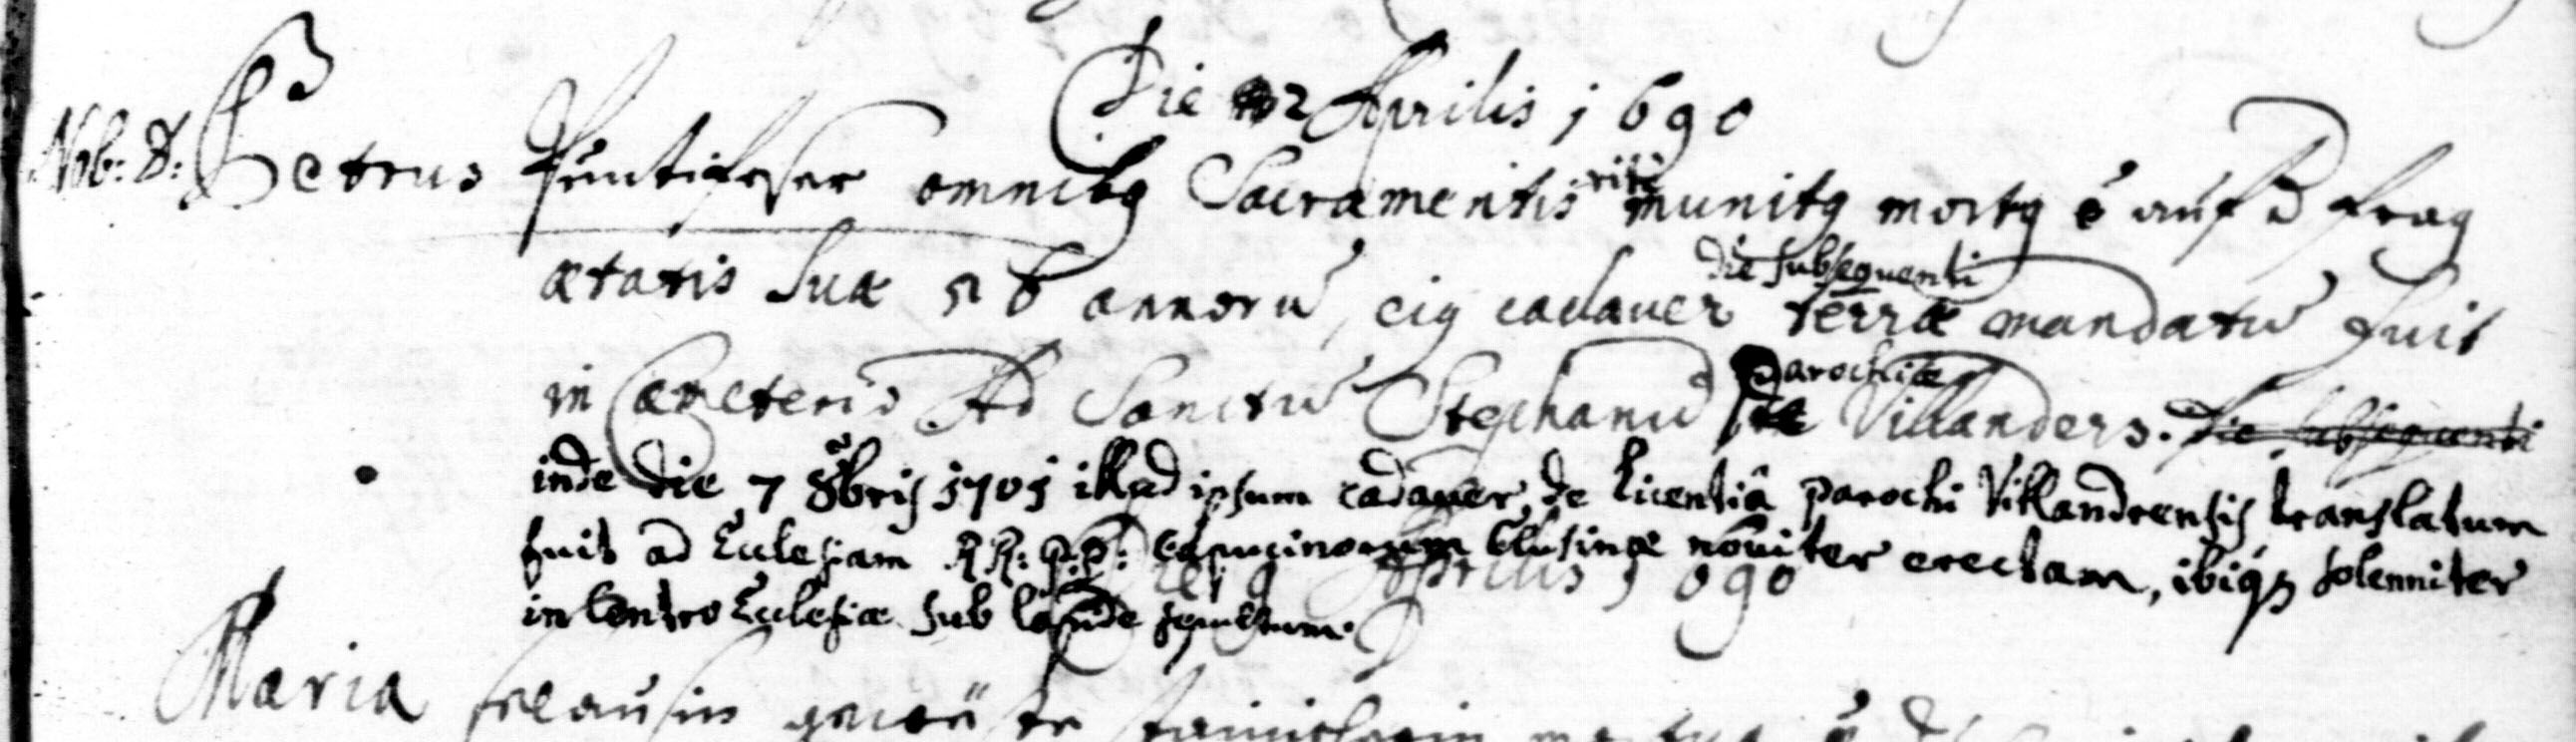 Die 2 Aprilis 1690
Nob: D: Petrus omnibq Sacramentis rite munitq mortq ē auf d frag
ætatis suæ 58 annorū, eiq cadaver die subsequenti terræ mandatū fuit
in Cæmeterio Ad Sanctū Stephanū Parochiæ Villanders. die subsequenti
inde die 7 8bris 1701 illud ipsum cadaver, de licentiâ parochi Villandrensis translatum
fuit ad Ecclesiam RR: P.P: Capucinorum Clusinæ noviter erectam, ibiqȝ solenniter
in Centro Ecclesiæ sub lapide sepultum.
Die 9 Aprilis 1690
Maria